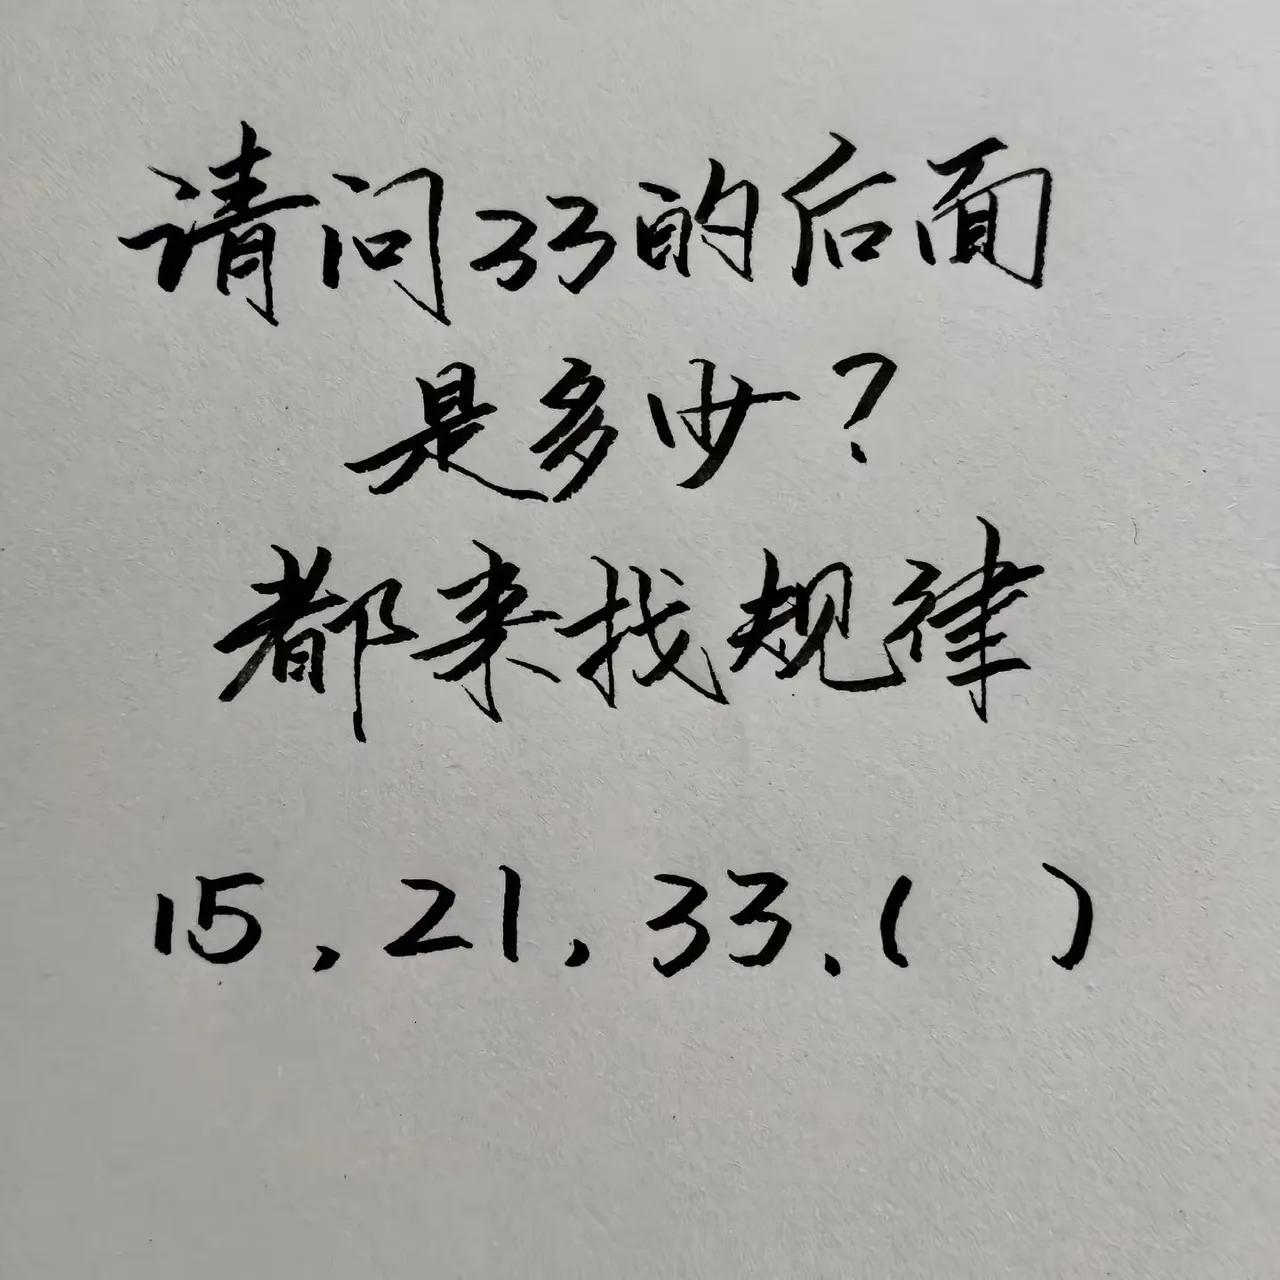 请问33的后面
是多少?
都来找规律
15,21,33,( )